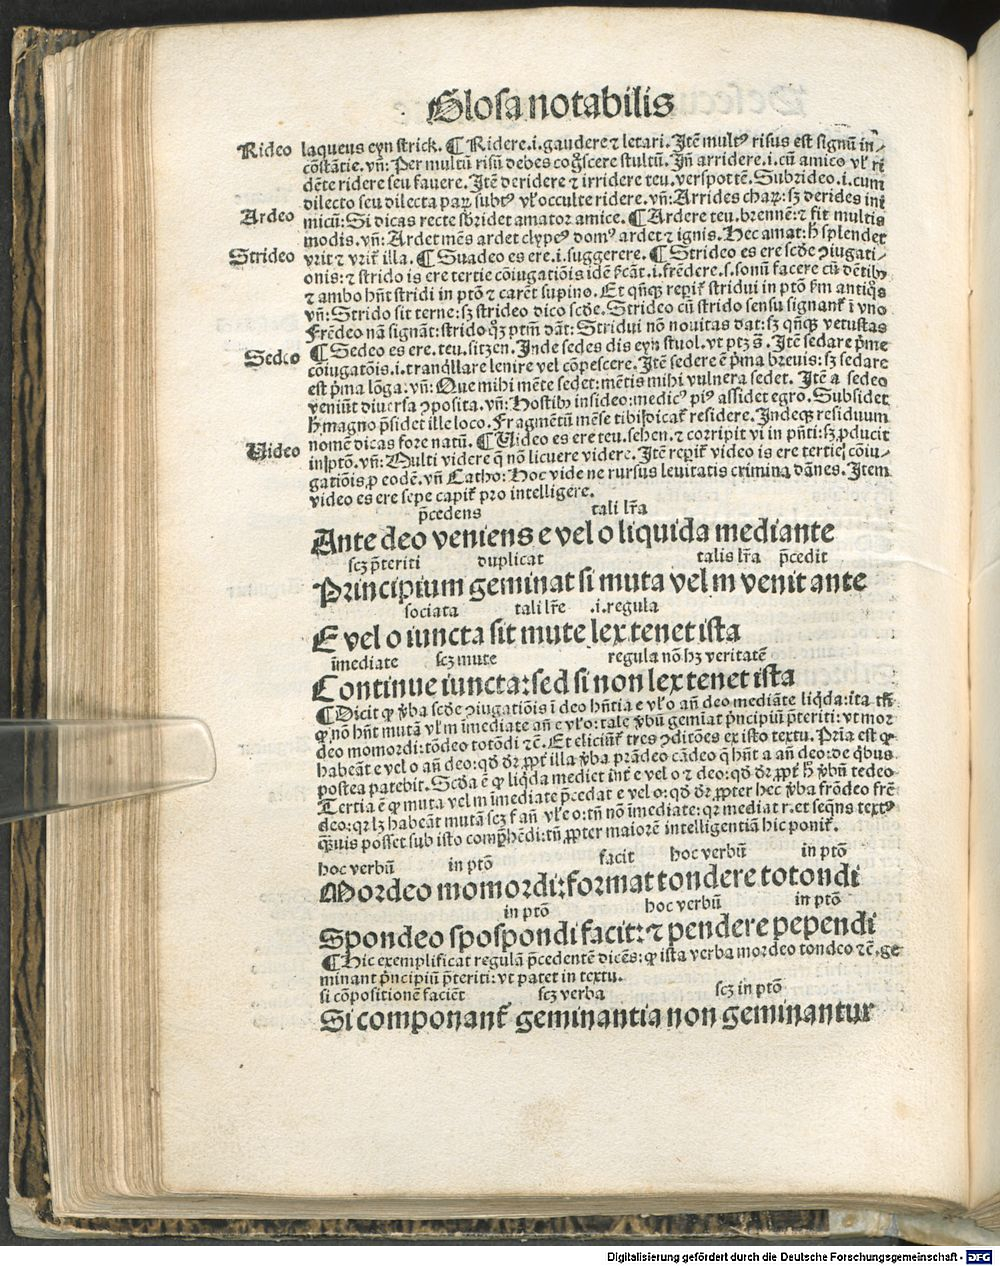 Glosa notabilis
Rideo laqueus eyn strick. ¶ Ridere .i. gaudere ⁊ letari. Itē multꝰ risus est signū in⸗
cōstātie. vñ: Per multū risū debes cognoscere stultū. Iñ arridere .i. cū amico vl' ri
dēte ridere seu fauere. Itē deridere ⁊ irridere teu. verspottē. Subrideo .i. cum
dilecto seu dilecta paꝝ subtꝰ vl' occulte ridere. vñ: Arrides charꝭ: sꝫ derides ini
Ardeo micū: Si dicas recte sb̄ridet amator amice. ¶ Ardere teu. brennē: ⁊ fit multis
modis. vñ: Ardet mēs ardet clypeꝰ domꝰ ardet ⁊ ignis. Hec amat: h̄ splendet
Strideo vrit ⁊ vrit̄ illa. ¶ Suadeo es ere .i. suggerere. ¶ Strideo es ere scd̄e ꝯiugati⸗
onis: ⁊ strido is ere tertie cōiugatiōis idē p̄cāt .i. frēdere .s. sonū facere cū dētibꝰ
⁊ ambo hn̄t stridi in ptō ⁊ carēt supino. Et qn̄qꝫ reperit̄ stridui in ptō ẜm antiq̊s
vñ: Strido sit terne: sꝫ strideo dico scd̄e. Strideo cū strido sensu signant̄ ī vno
Frēdeo nā signāt: strido qꝫ ptm̄ dāt: Stridui nō nouitas dat: sꝫ qn̄qꝫ vetustas
Sedeo ¶ Sedeo es ere. teu. sitzen. Inde sedes dis eyn stuol. vt ptꝫ ā. Itē sedare p̄me
cōiugatōis .i. tranqllare lenire vel cōpescere. Itē sedere ē p̄ma breuis: sꝫ sedare
est p̄ma lōga: vñ: Que mihi mēte sedet: mētis mihi vulnera sedet. Itē a sedeo
veniūt diuersa ꝯposita. vñ: Hostibꝰ insideo: medicꝰ piꝰ assidet egro. Subsidet
h̄ magno p̄sidet ille loco. Fragmētū mēse tibi dicat̄ residere. Indeqꝫ residuum
Uideo nomē dicas fore natū. ¶ Uideo es ere teu. sehen. ⁊ corripit vi in pn̄ti: sꝫ ꝓducit
in ptō. vñ: Multi videre q̄ nō licuere videre. Itē reperit̄ video is ere tertie cōiu⸗
gatiōis ꝓ eodē. vñ Catho: Hoc vide ne rursus leuitatis crimina dānes. Item
video es ere sepe capit̄ pro intelligere.
p̄cedens tali lr̄a
Ante deo veniens e vel o liquida mediante
scꝫ p̄teriti duplicat talis lr̄a p̄cedit
Principium geminat si muta vel m venit ante
sociata tali lr̄e .i. regula
E vel o iuncta sit mute lex tenet ista
īmediate scꝫ mute regula nō hꝫ veritatē
Continue iuncta: sed si non lex tenet ista
¶ Dicit ꝙ v̄ba scd̄e ꝯiugatiōis ī deo hn̄tia e vl' o an̄ deo mediāte liqda: ita tn̄
ꝙ nō hn̄t mutā vl' m īmediate an̄ e vl' o: tale v̄bū gemīat p̄ncipiū p̄teriti: vt mor
deo momordi: tōdeo totōdi ⁊c̄. Et eliciūt̄ tres ꝯditōes ex isto textu. Prīa est ꝙ
habeāt e vel o an̄ deo: qd̄ dr̄ ꝓpt̄ illa v̄ba prādeo cādeo q̄ hn̄t a an̄ deo: de qbus
postea patebit. Scd̄a ē ꝙ liqda mediet int̄ e vel o ⁊ deo: qd̄ dr̄ ꝓpt̄ h̄ v̄bū tedeo
Tertia ē ꝙ muta vel m īmediate p̄cedat e vel o: qd̄ dr̄ ꝓpter hec v̄ba frōdeo frē
deo: qr lꝫ habeāt mutā scꝫ f an̄ vl' e o: tn̄ nō īmediate: qr mediat r. et seqn̄s textꝰ
q̄uis posset sub isto comp̄hēdi: tn̄ ꝓpter maiorē intelligentiā hic ponit̄.
hoc verbū in ptō facit hoc verbū in ptō
Mordeo momordi: format tondere totondi
in ptō hoc verbū in ptō
Spondeo spospondi facit: ⁊ pendere pependi
¶ Hic exemplificat regulā p̄cedentē dicēs: ꝙ ista verba mordeo tondeo ⁊c̄. ge
minant p̄ncipiū p̄teriti: vt patet in textu.
si cōpositionē faciēt scꝫ verba scꝫ in ptō
Si componant̄ geminantia non geminantur
Digitalisierung gefördert durch die Deutsche Forschungsgemeinschaft - DFG